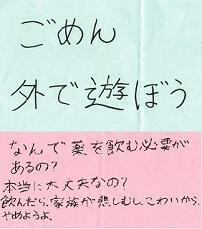 ごめん
外で遊ぼう
なんで薬を飲む必要が
あるの?
本当に大丈夫なの?
飲んだら、家族が悲しむし、こわいから、
やめようよ。